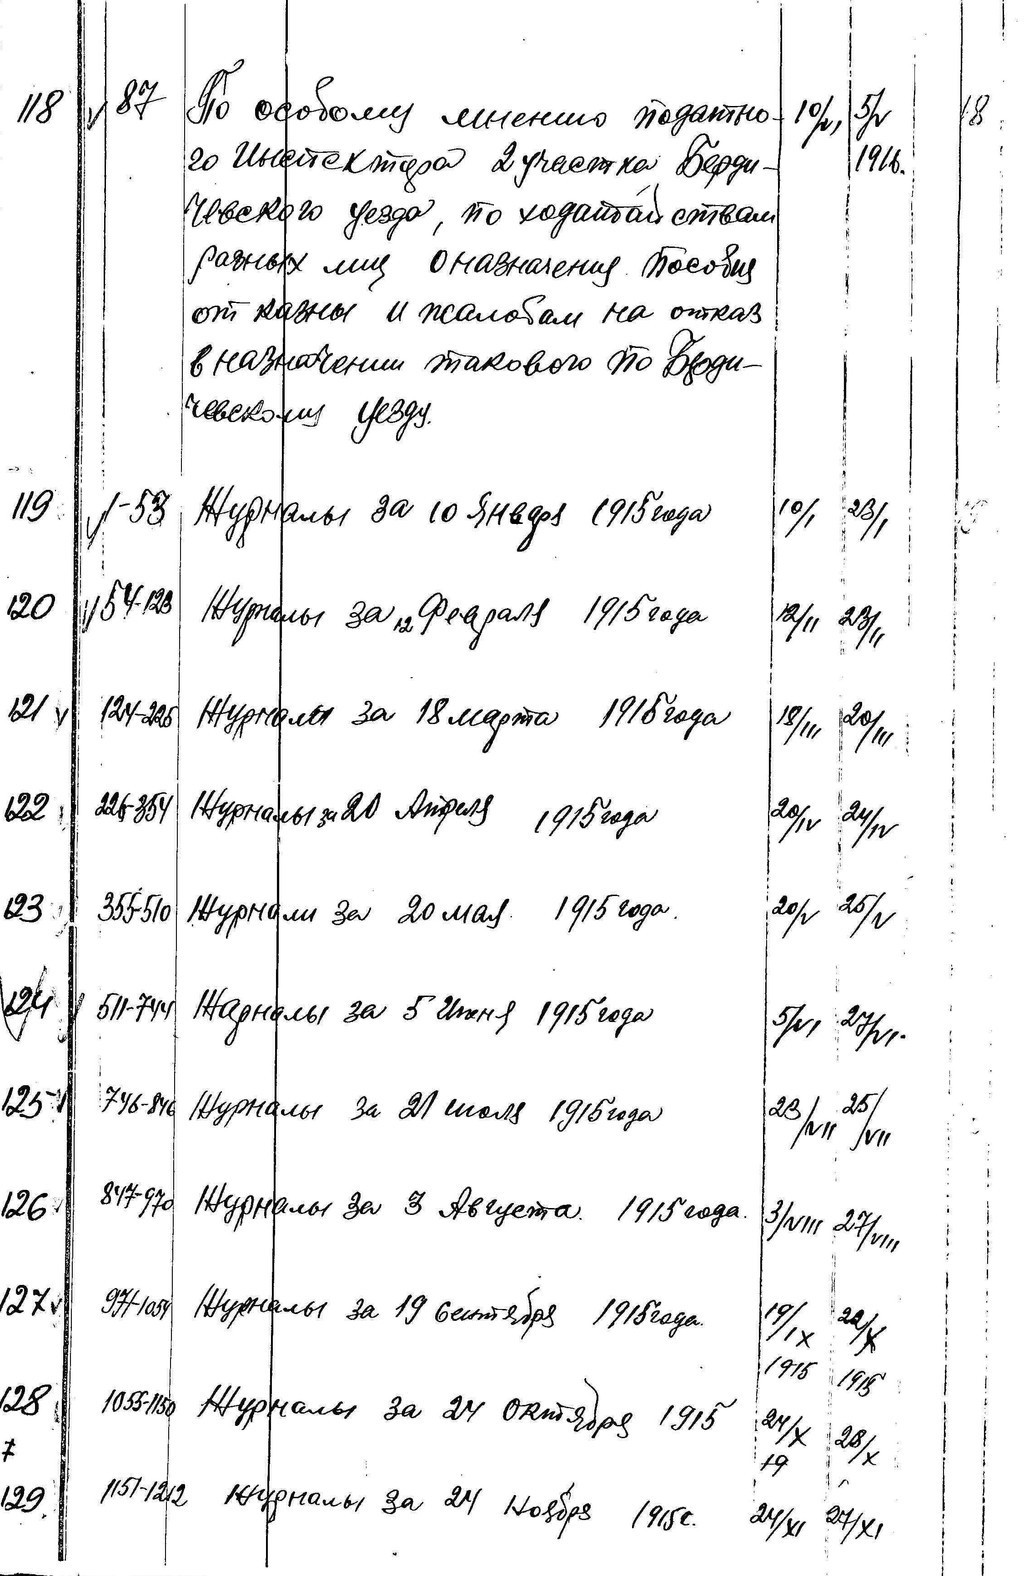 118 87 По особому мнению податно- 10/V, 5/V 18
го Инспектора 2 участка Берди- 1916.
чевского уезда, по ходатайствам
разных лиц о назначения пособия
от казны и жалобам на отказ
в назначении такового по Берди-
чевскому уезду.
119 1-53 Журналы за 10 Января 1915 года 10/I 23/I
120 54-123 Журналы за 12 Февраля 1915 года 12/II 23/II
121 124-225 Журналы за 18 марта 1915 года 18/III 20/III
122 226-354 Журналы за 20 Апреля 1915 года 20/IV 24/IV
123 355-510 Журнали за 20 мая 1915 года. 20/V 25/V
124 511-744 Жарналы за 5 Июня 1915 года 5/VI 27/VI.
125 746-846 Журналы за 21 июля 1915 года 23/VII 25/VII
126 847-970 Журналы за 3 Августа. 1915 года. 3/VIII 27/VIII
127 971-1054 Журналы за 19 Сентября 1915 года. 19/IX 22/X
1915 1915
128 1055-1150 Журналы за 24 Октября 1915 24/X 28/X
7 19
129. 1151-1212 Журналы за 24 Ноября 1915 г. 24/XI 27/XI